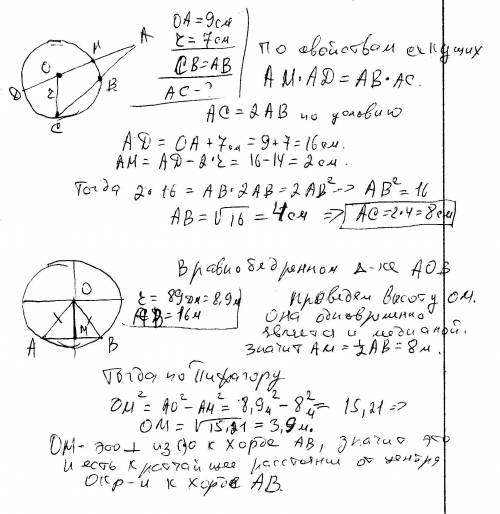 OA = 9см
r = 7см
CB = AB
AC - ?
A
M
O
B
D
r
C
По свойствам секущих
AM·AD = AB·AC.
AC = 2AB по условию
AD = OA + 7см = 9+7 = 16см.
AM = AD - 2·r = 16-14 = 2см.
Тогда 2·16 = AB·2AB = 2AB² => AB² = 16
AB = √16 = 4см => AC = 2·4 = 8см
В равнобедренном Δ-ке AOB
r = 89дм = 8,9м
AB = 16м
проведем высоту OM.
Она одновременно
является и медианой.
Значит AM = ½AB = 8м.
O
M
A
B
Тогда по Пифагору
OM² = AO² - AM² = 8,9² - 8² = 15,21 =>
OM = √15,21 = 3,9м.
OM - это ⊥ из O к хорде AB, значит это
и есть кратчайшее расстояние от центра
окр-и к хорде AB.